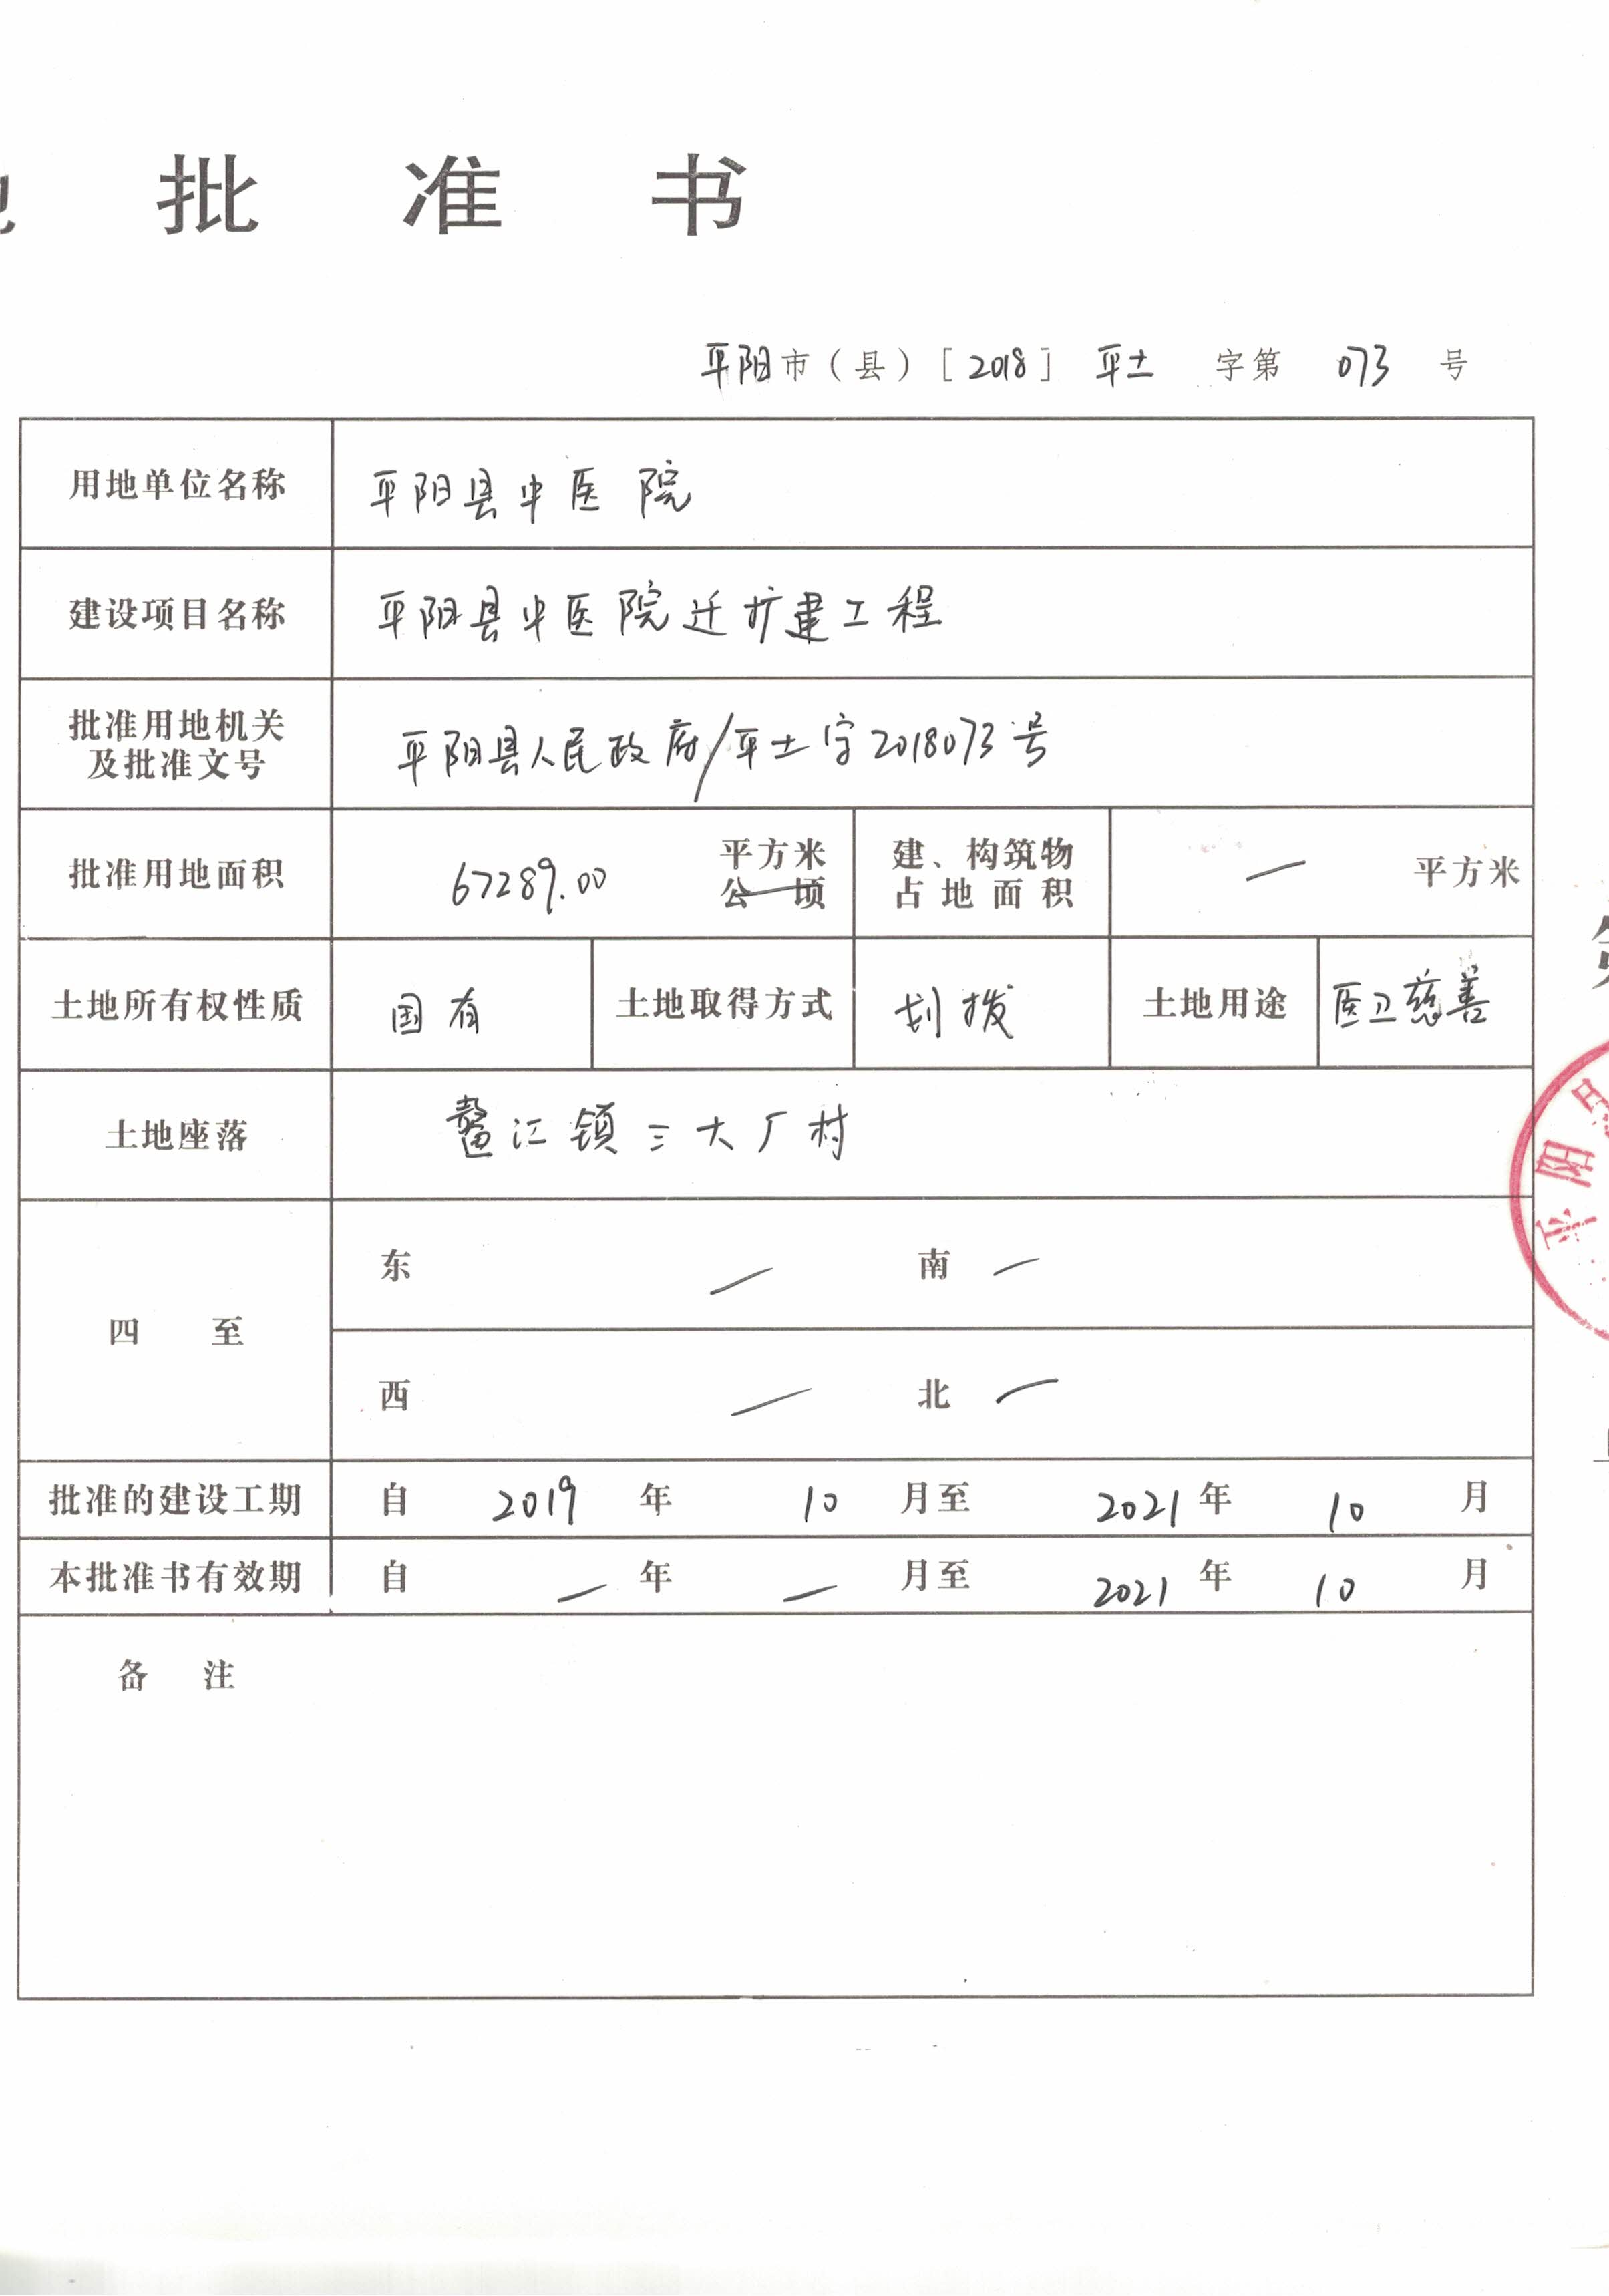 批准书
平阳市（县）[2018] 平土 字第 073 号
用地单位名称 平阳县中医院
建设项目名称 平阳县中医院迁扩建工程
批准用地机关
及批准文号
平阳县人民政府/平土字2018073号
批准用地面积 67289.00 平方米
公顷
建、构筑物
占地面积
— 平方米
土地所有权性质 国有 土地取得方式 划拨 土地用途 医卫慈善
土地座落 鳌江镇三大厂村
四至
东 — 南 —
西 — 北 —
批准的建设工期 自 2019 年 10 月至 2021 年 10 月
本批准书有效期 自 — 年 — 月至 2021 年 10 月
备注
平阳县